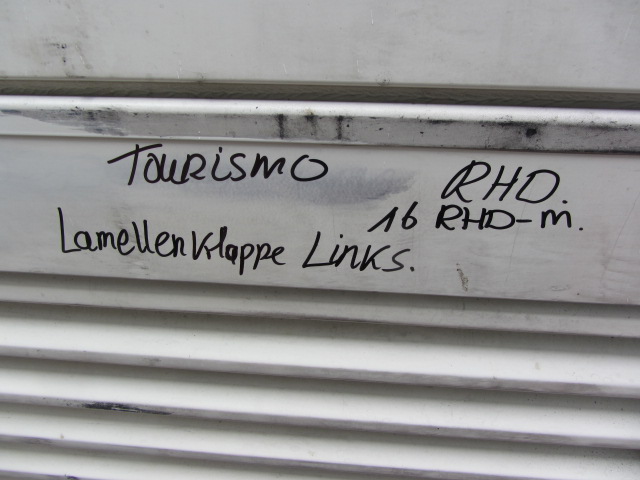 Tourismo RHD.
16 RHD-M.
Lamellenklappe Links.